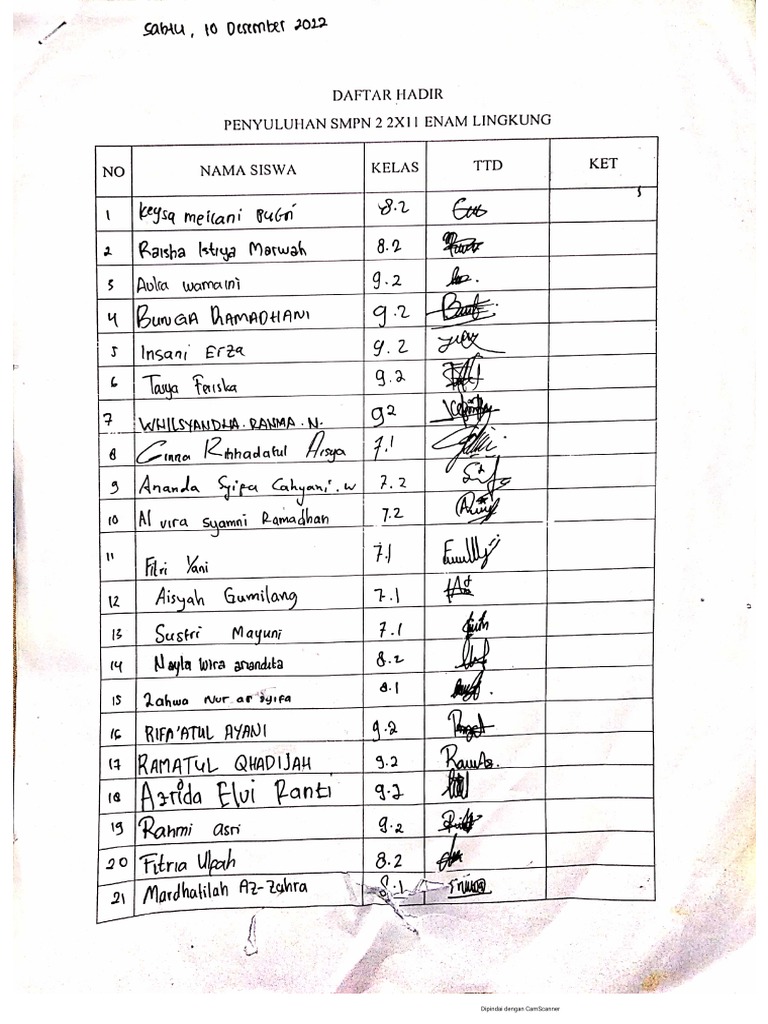 Sabtu, 10 Desember 2022
DAFTAR HADIR
PENYULUHAN SMPN 2 2X11 ENAM LINGKUNG
NO NAMA SISWA KELAS TTD KET
1 Keysa meilani putri 8.2
2 Raisha Istiya Marwah 8.2
3 Aulia wamaini 9.2
4 BUNGA RAMADHANI 9.2
5 Insani Erza 9.2
6 Tasya Feriska 9.2
7 WHILSYANDHA. RAHMA. N. 92
8 Cinna Rihhadatul Aisya 7.1
9 Ananda Syifa Cahyani. W 7.2
10 Al vira syamni Ramadhan 7.2
11 Fitri Yani 7.1
12 Aisyah Gumilang 7.1
13 Sustri Mayuni 7.1
14 Nayla wira anandita 8.2
15 Zahwa Nur as syifa 8.1
16 RIFA'ATUL AYANI 9.2
17 RAMATUL QHADIJAH 9.2
18 Azrida Elvi Ranti 9.2
19 Rahmi asri 9.2
20 Fitria Ulfah 8.2
21 Mardhalilah Az-Zahra 8.1
Dipindai dengan CamScanner